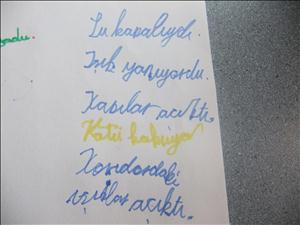 Su kapalıydı.
Işık yanıyordu.
Kapılar açıktı.
Kötü kokuyor
Koridordaki
ışıklar açıktı.